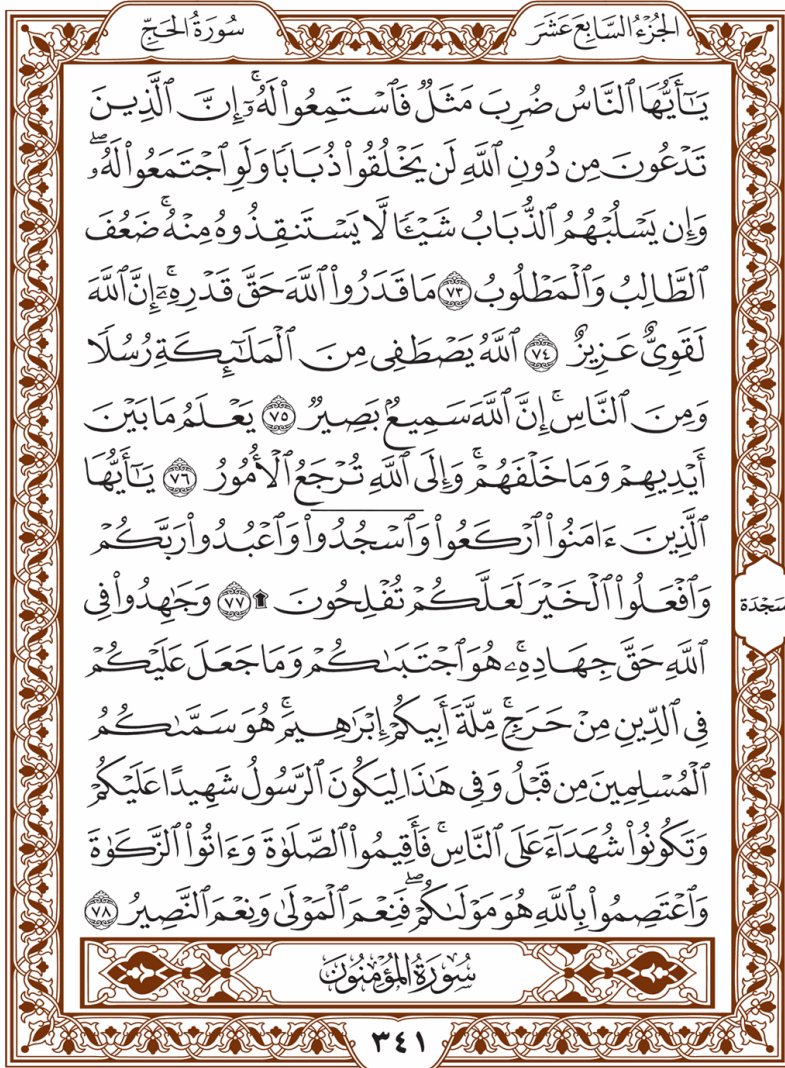 الجُزْءُ السَّابِعَ عَشَرَ
سُورَةُ الحَجِّ
يَـٰٓأَيُّهَا ٱلنَّاسُ ضُرِبَ مَثَلٌ فَٱسْتَمِعُوا۟ لَهُۥٓۚ إِنَّ ٱلَّذِينَ
تَدْعُونَ مِن دُونِ ٱللَّهِ لَن يَخْلُقُوا۟ ذُبَابًا وَلَوِ ٱجْتَمَعُوا۟ لَهُۥۖ
وَإِن يَسْلُبْهُمُ ٱلذُّبَابُ شَيْـًٔا لَّا يَسْتَنقِذُوهُ مِنْهُۚ ضَعُفَ
ٱلطَّالِبُ وَٱلْمَطْلُوبُ ٧٣ مَا قَدَرُوا۟ ٱللَّهَ حَقَّ قَدْرِهِۦٓۚ إِنَّ ٱللَّهَ
لَقَوِىٌّ عَزِيزٌ ٧٤ ٱللَّهُ يَصْطَفِى مِنَ ٱلْمَلَـٰٓئِكَةِ رُسُلًا
وَمِنَ ٱلنَّاسِۚ إِنَّ ٱللَّهَ سَمِيعٌۢ بَصِيرٌ ٧٥ يَعْلَمُ مَا بَيْنَ
أَيْدِيهِمْ وَمَا خَلْفَهُمْۚ وَإِلَى ٱللَّهِ تُرْجَعُ ٱلْأُمُورُ ٧٦ يَـٰٓأَيُّهَا
ٱلَّذِينَ ءَامَنُوا۟ ٱرْكَعُوا۟ وَٱسْجُدُوا۟ وَٱعْبُدُوا۟ رَبَّكُمْ
وَٱفْعَلُوا۟ ٱلْخَيْرَ لَعَلَّكُمْ تُفْلِحُونَ ۩ ٧٧ وَجَـٰهِدُوا۟ فِى
سَجْدَة
ٱللَّهِ حَقَّ جِهَادِهِۦۚ هُوَ ٱجْتَبَىٰكُمْ وَمَا جَعَلَ عَلَيْكُمْ
فِى ٱلدِّينِ مِنْ حَرَجٍۚ مِّلَّةَ أَبِيكُمْ إِبْرَٰهِيمَۚ هُوَ سَمَّىٰكُمُ
ٱلْمُسْلِمِينَ مِن قَبْلُ وَفِى هَـٰذَا لِيَكُونَ ٱلرَّسُولُ شَهِيدًا عَلَيْكُمْ
وَتَكُونُوا۟ شُهَدَآءَ عَلَى ٱلنَّاسِۚ فَأَقِيمُوا۟ ٱلصَّلَوٰةَ وَءَاتُوا۟ ٱلزَّكَوٰةَ
وَٱعْتَصِمُوا۟ بِٱللَّهِ هُوَ مَوْلَىٰكُمْۖ فَنِعْمَ ٱلْمَوْلَىٰ وَنِعْمَ ٱلنَّصِيرُ ٧٨
سُورَةُ المُؤْمِنُونَ
٣٤١